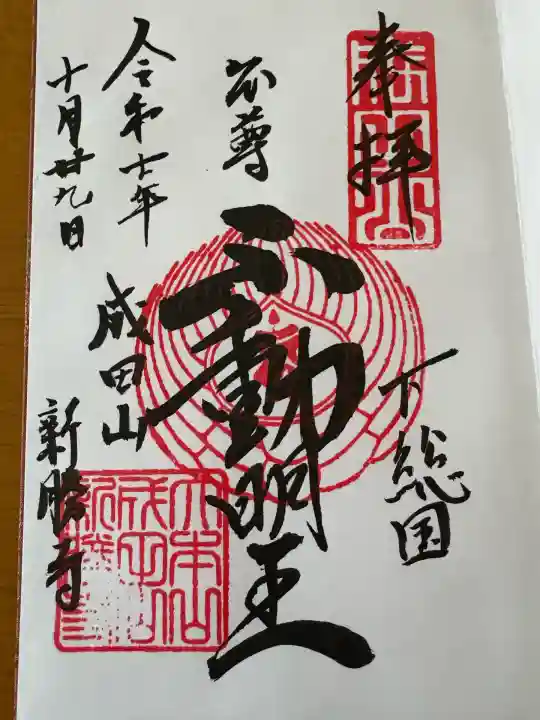 奉拝
下総国
本尊
不動明王
成田山
新勝寺
令和七年
十月廿九日
大本山
成田山